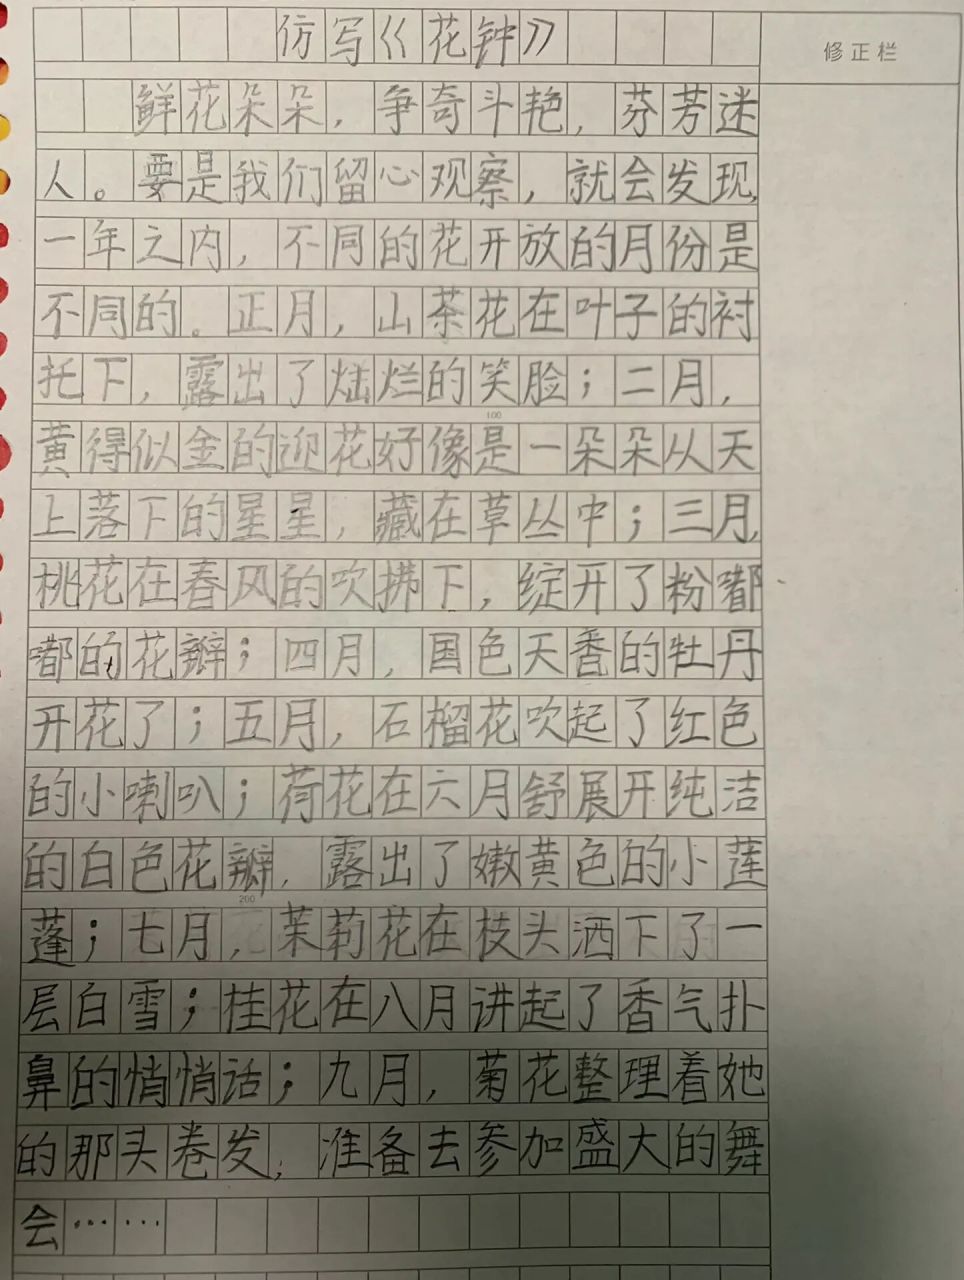 仿写《花钟》
修正栏
鲜花朵朵，争奇斗艳，芬芳迷
人。要是我们留心观察，就会发现，
一年之内，不同的花开放的月份是
不同的。正月，山茶花在叶子的衬
托下，露出了灿烂的笑脸；二月，
100
黄得似金的迎花好像是一朵朵从天
上落下的星星，藏在草丛中；三月，
桃花在春风的吹拂下，绽开了粉嘟
嘟的花瓣；四月，国色天香的牡丹
开花了；五月，石榴花吹起了红色
的小喇叭；荷花在六月舒展开纯洁
的白色花瓣，露出了嫩黄色的小莲
200
蓬；七月，茉莉花在枝头洒下了一
层白雪；桂花在八月讲起了香气扑
鼻的悄悄话；九月，菊花整理着她
的那头卷发，准备去参加盛大的舞
会……